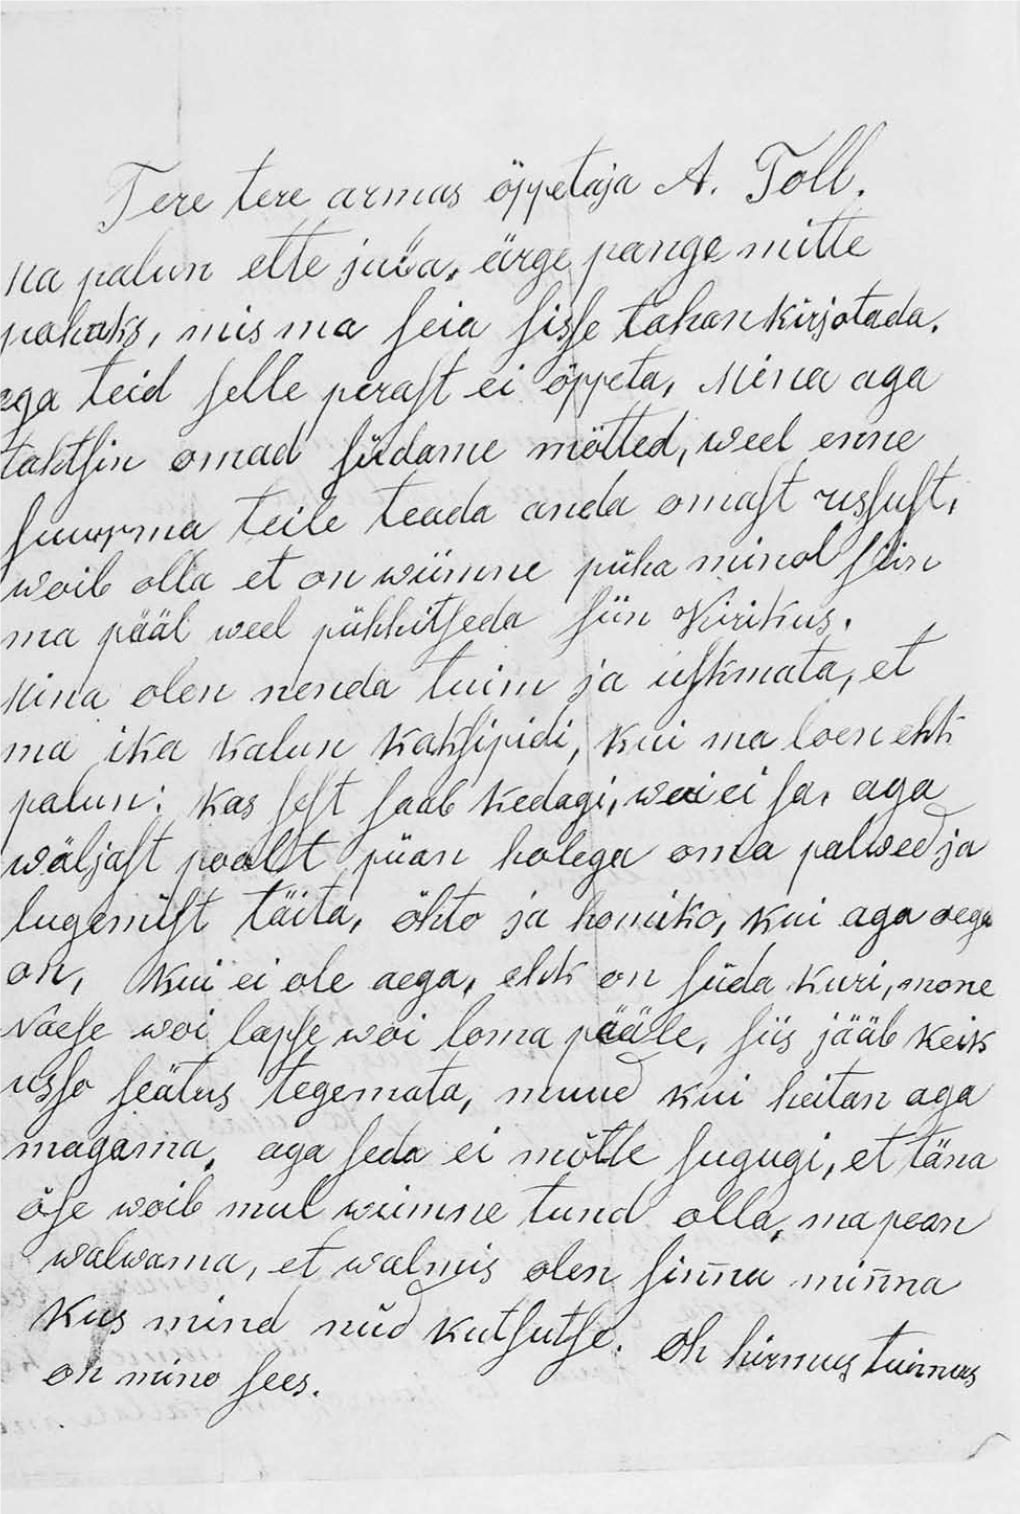 Tere tere armas õppetaja A. Toll.
Ma palun ette juba, ärge pange mitte
pahaks, mis ma seia sisse tahan kirjotada.
ega teid selle perast ei õppeta, Mina aga
tahtsin omad südame mõtted, weel enne
surma teile teada anda omast ussust,
woib olla et on wiimne püha minol siin
ma pääl weel pühhitseda siin Kirikus.
Mina olen nenda tuim ja uskmata, et
ma ika kalun kaksipidi, kui ma loen ehk
palun: kas sest saab kedagi, woi ei sa, aga
wäljast poolt püan holega oma palwed ja
lugemist täita, õhto ja homiko, kui aga aega
on, Kui ei ole aega, ehk on süda kuri, mone
Naese woi lapse woi loma pääle, siis jääb keik
usso seätus tegemata, muud kui heitan aga
magama, aga seda ei mõtle sugugi, et täna
öse woib mul wiimne tund olla, ma pean
walwama, et walmis olen sinna minna
kus mind nüd kutsutse. Oh hirmus tuimus
on mino sees.